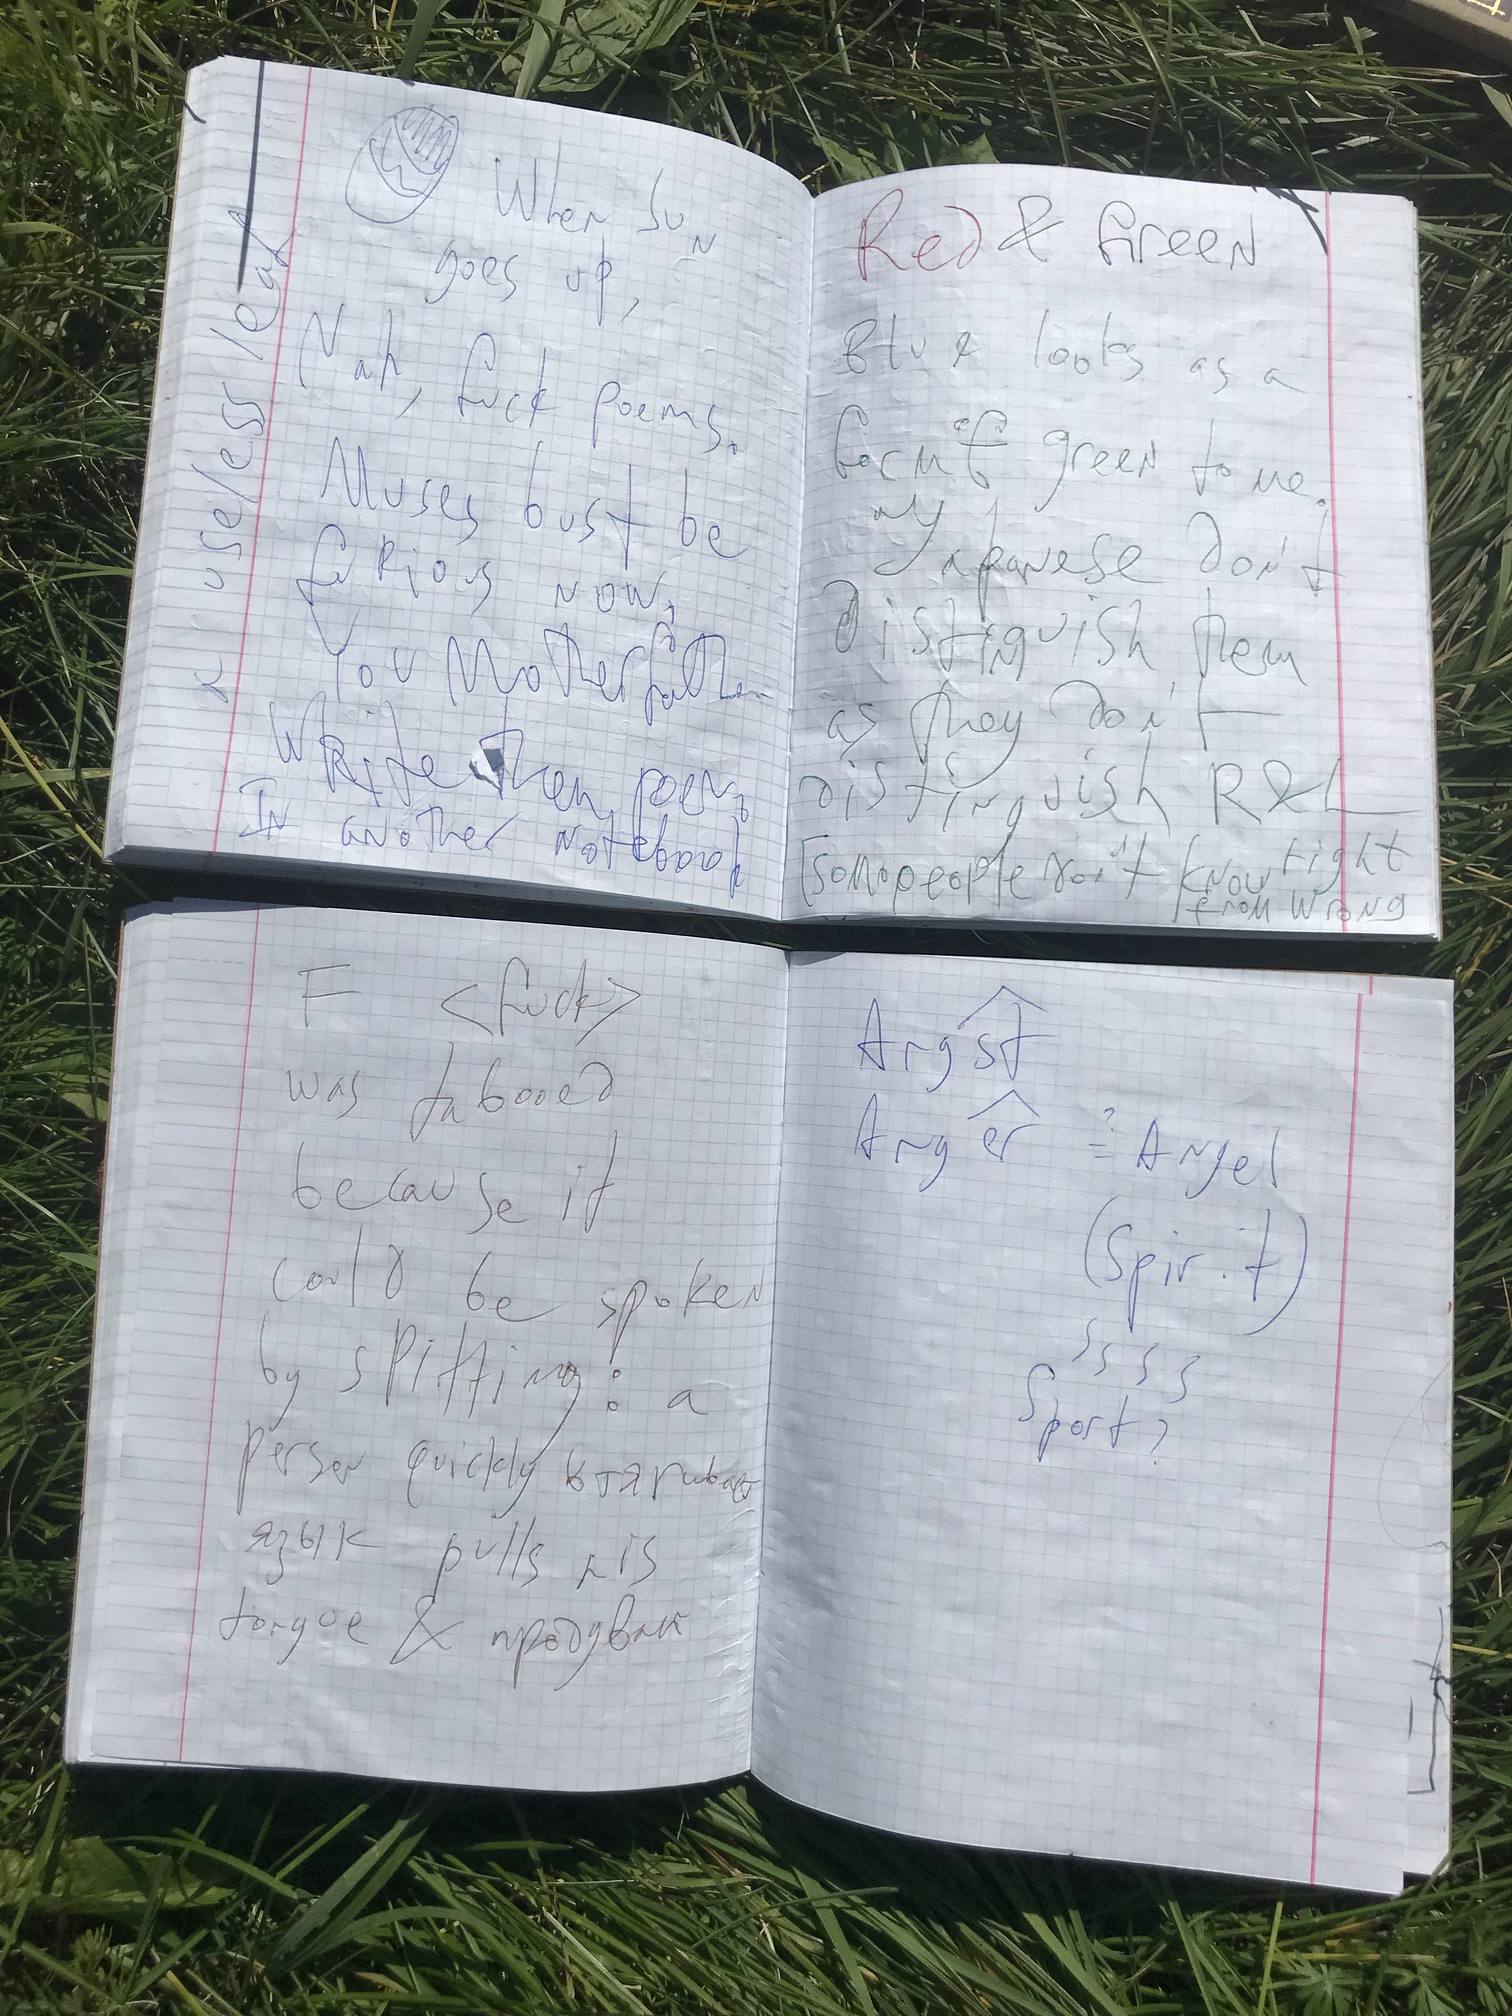 When Sun
goes up,
Nah, fuck poems.
Muses bust be
furious now,
You
Write them poems
In another notebook
useless leaf
Red & Green
Blue looks as a
form of green to me.
Japanese don't
distinguish them
as they don't
distinguish R&L
[some people don't know right
from wrong
F <fuck>
was tabooed
because it
could be spoken
by spitting: a
person quickly втягивает
язык pulls his
tongue & продувает
Angst
Anger ?= Angel
(Spirit)
s s s s
Sport?